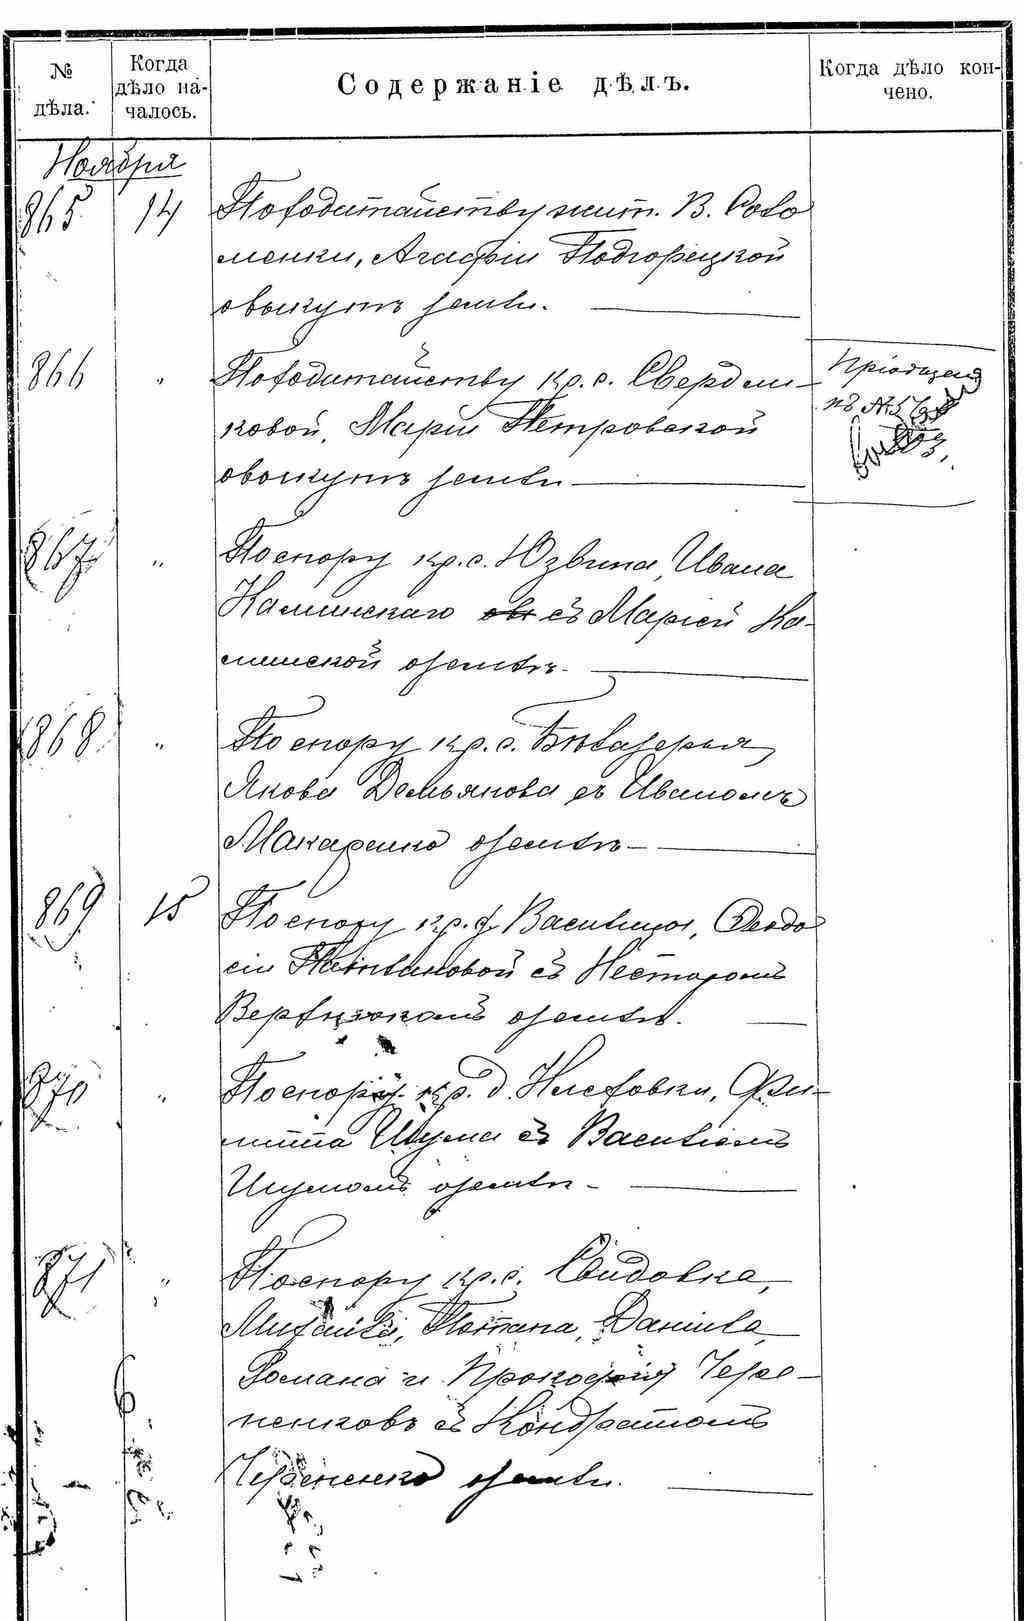 № дѣла.
Когда дѣло началось.
Содержаніе дѣлъ.
Когда дѣло кончено.
Ноября
865 14 По ходатайству жит. В. Соло
менки, Агафіи Подгорецкой
о выкупѣ земли.
866 " По ходатайству кр. с. Свердли-
ковой, Маріи Петровской
о выкупѣ земли
Пріобщено
къ №
867 " По спору кр. с. Юзвина, Ивана
Калинскаго съ Маріей Ка-
линской о землѣ.
868 " По спору кр. с. Бѣлозерья,
Якова Демьянова съ Иваномъ
Макаренко о землѣ
869 15 По спору кр. Василицы, Феодо
сіи съ Несторомъ
о землѣ.
870 " По спору кр. д. Фи-
липпа Шума съ Василіемъ
Шумомъ о землѣ
871 " По спору кр. с. Свидовка,
Михаила, Потапа, Даніила,
Романа и Прокофія Чере-
пенковъ съ Кондратомъ
Черепенко о землѣ.